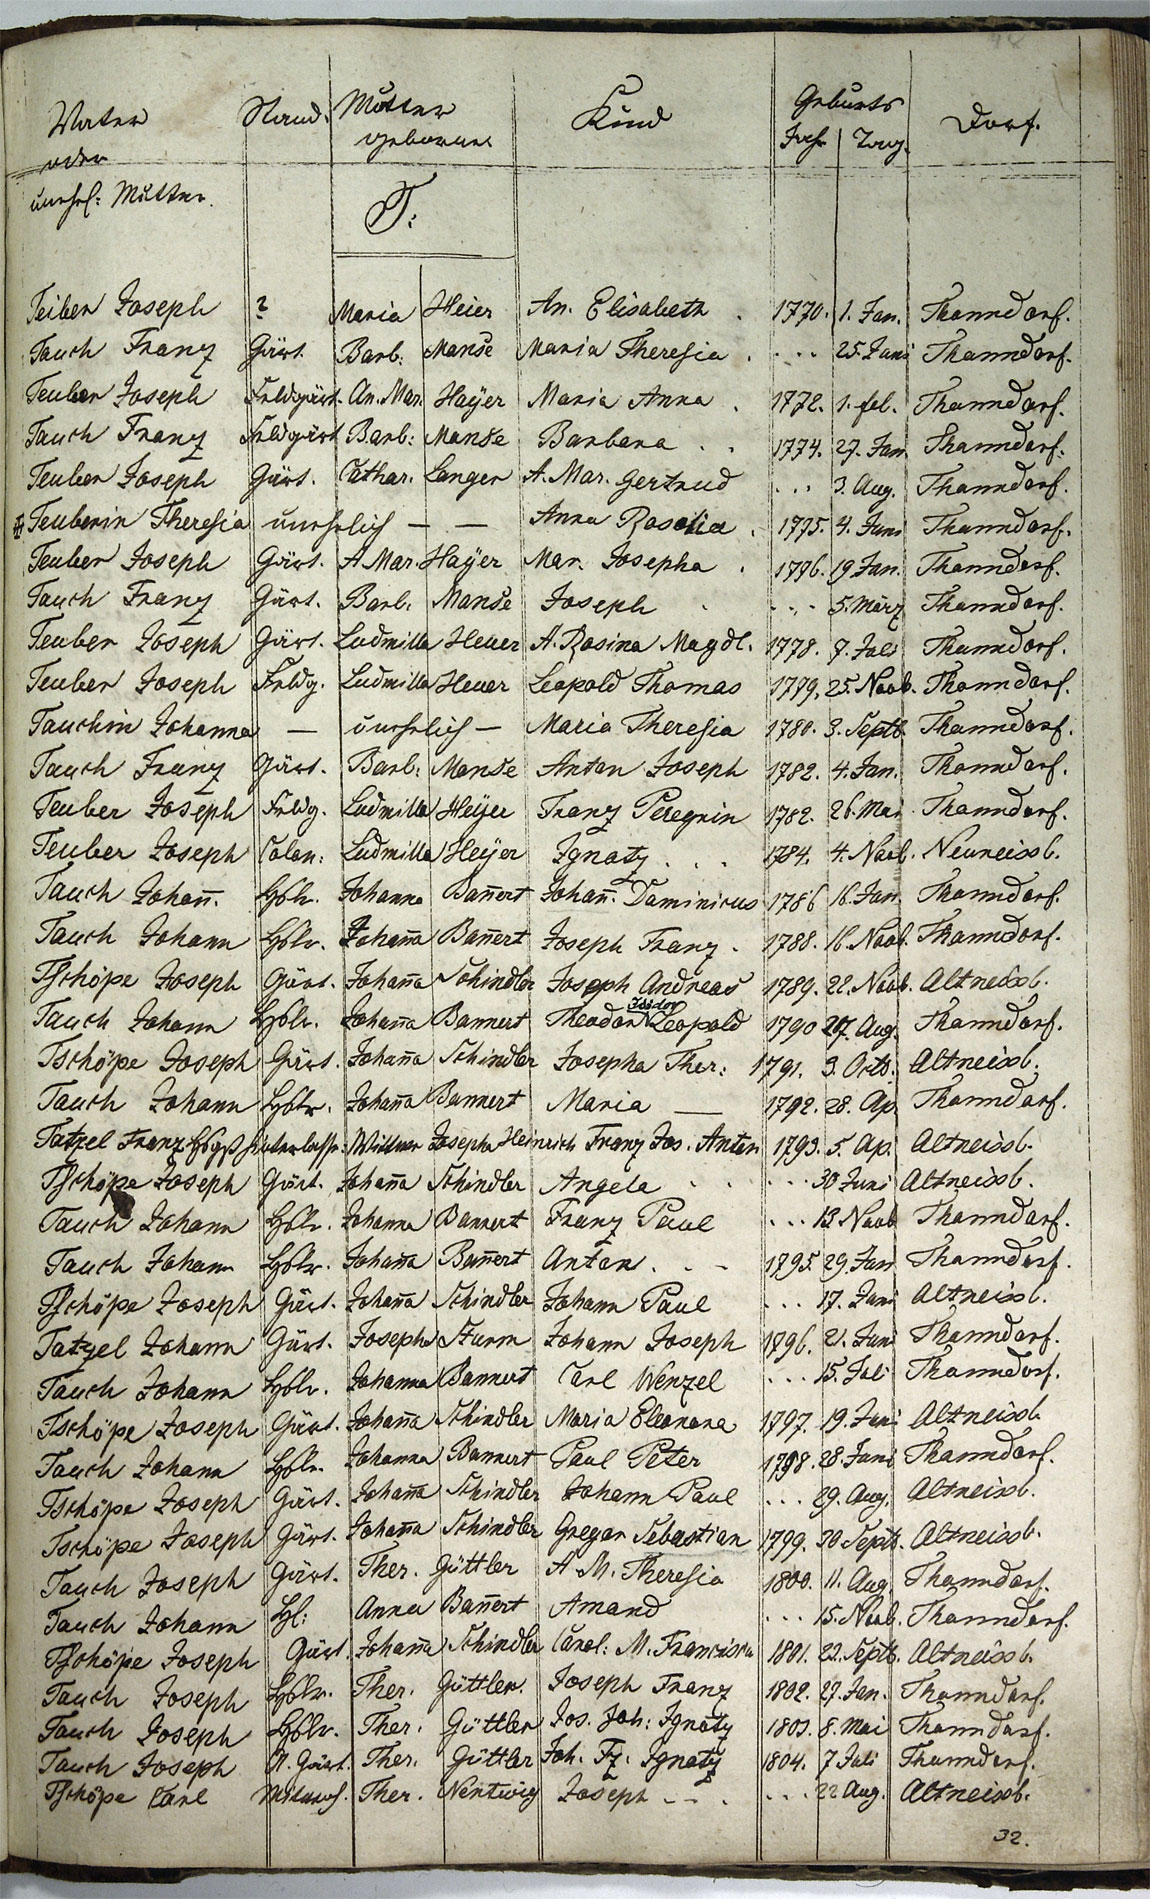 Vater Stand. Mutter Kind Geburts Dorf.
oder geborne Jahr Tag.
unehel: Mutter.
T:
Teiber Joseph ? Maria Heier An. Elisabeth . 1770. 1. Jan. Thanndorf.
Tauch Franz Gärt. Barb: Manse Maria Theresia . . . . 25. Juni Thanndorf.
Teuber Joseph Feldgärt. An. Mar. Hayer Maria Anna . 1772. 1. feb. Thanndorf.
Tauch Franz Feldgärt Barb: Manse Barbara . . 1774. 27. Jan. Thanndorf.
Teuber Joseph Gärt. Cathar. Langer A. Mar. Gertrud . . . 3. Aug. Thanndorf.
Teuberin Theresia unehelich — — Anna Rosalia . 1775. 4. Juni Thanndorf.
Teuber Joseph Gärt. A Mar. Hayer Mar. Josepha . 1776. 19 Jan. Thanndorf.
Tauch Franz Gärt. Barb. Manse Joseph . . . . 5. März Thanndorf.
Teuber Joseph Gärt. Ludmilla Heuer A. Rosina Magdl. 1778. 7. Juli Thanndorf.
Teuber Joseph Feldg. Ludmilla Heuer Leopold Thomas 1779. 25. Novb. Thanndorf.
Tauchin Johanna — unehelich — Maria Theresia 1780. 3. Septb. Thanndorf.
Tauch Franz Gärt. Barb: Manse Anton Joseph 1782. 4. Jan. Thanndorf.
Teuber Joseph Feldg. Ludmilla Heyer Franz Peregrin 1782. 26. Mai Thanndorf.
Teuber Joseph Colon: Ludmilla Heyer Ignatz . . . 1784. 4. Novb. Neuneissb.
Tauch Johan̄. Hslr. Johanna Ban̄ert Johan̄. Dominicus 1786 16. Jan. Thanndorf.
Tauch Johann Hslr. Johan̄a Ban̄ert Joseph Franz . 1788. 16. Novb. Thanndorf.
Tschöpe Joseph Gärt. Johan̄a Schindler Joseph Andreas 1789. 22. Novb. Altneissb.
Tauch Johann Hslr. Johan̄a Bannert Theodor Isidor Leopold 1790 27. Aug. Thanndorf.
Tschöpe Joseph Gärt. Johan̄a Schindler Josepha Ther: 1791. 3. Octb. Altneissb.
Tauch Johann Hslr. Johan̄a Bannert Maria — 1792. 28. Ap. Thanndorf.
Tatzel Franz hinterlass. Wittwe Josepha Heinrich Franz Jos. Anton 1793. 5. Ap. Altneissb.
Tschöpe Joseph Gärt. Johan̄a Schindler Angela . . . . . 30 Juni Altneissb.
Tauch Johann Hslr. Johanna Bannert Franz Paul . . . 13 Novb Thanndorf.
Tauch Johann Hslr. Johan̄a Ban̄ert Anton . . – 1795. 29. Jan Thanndorf.
Tschöpe Joseph Gärt. Johan̄a Schindler Johann Paul . . . 17. Juni Altneissb.
Tatzel Johann Gärt. Josepha Sturm Johann Joseph 1796. 21. Juni Thanndorf.
Tauch Johann Hslr. Johanna Bannert Carl Wenzel . . . 15. Juli Thanndorf.
Tschöpe Joseph Gärt. Johan̄a Schindler Maria Eleonora 1797. 19. Juni Altneissb.
Tauch Johann Hslr. Johanna Bannert Paul Peter 1798. 28. Juni Thanndorf.
Tschöpe Joseph Gärt. Johan̄a Schindler Johann Paul . . . 29. Aug. Altneissb.
Tschöpe Joseph Gärt. Johan̄a Schindler Gregor Sebastian 1799. 30 Septb. Altneissb.
Tauch Joseph Gärt. Ther. Güttler A. M. Theresia 1800. 11. Aug. Thanndorf.
Tauch Johann Hsl: Anna Ban̄ert Amand . . . 15. Novb. Thanndorf.
Tschöpe Joseph Gärt. Johan̄a Schindler Carol: M. Francisca 1801. 22. Septb. Altneissb.
Tauch Joseph Hslr. Ther. Güttler. Joseph Franz 1802. 27. Jan. Thanndorf.
Tauch Joseph Hslr. Ther. Güttler Jos. Joh: Ignatz 1803. 8. Mai Thanndorf.
Tauch Joseph Gärt. Ther. Güttler Joh. Fz. Ignatz 1804. 7. Juli Thanndorf.
Tschöpe Carl Ther. Nentwig Joseph – – . . . . 22 Aug. Altneissb.
32.